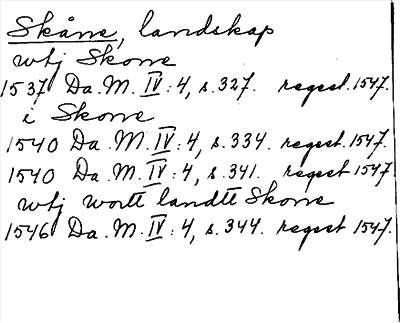 Skåne, landskap
wtj Skone
1537 Da. M. IV: 4, s. 327. regest. 1547.
i Skone
1540 Da. M. IV: 4, s. 334. regest. 1547.
1540 Da. M. IV: 4, s. 341. regest 1547
wtj wortt landtt Skone
1546 Da. M. IV: 4, s. 344. regest 1547.